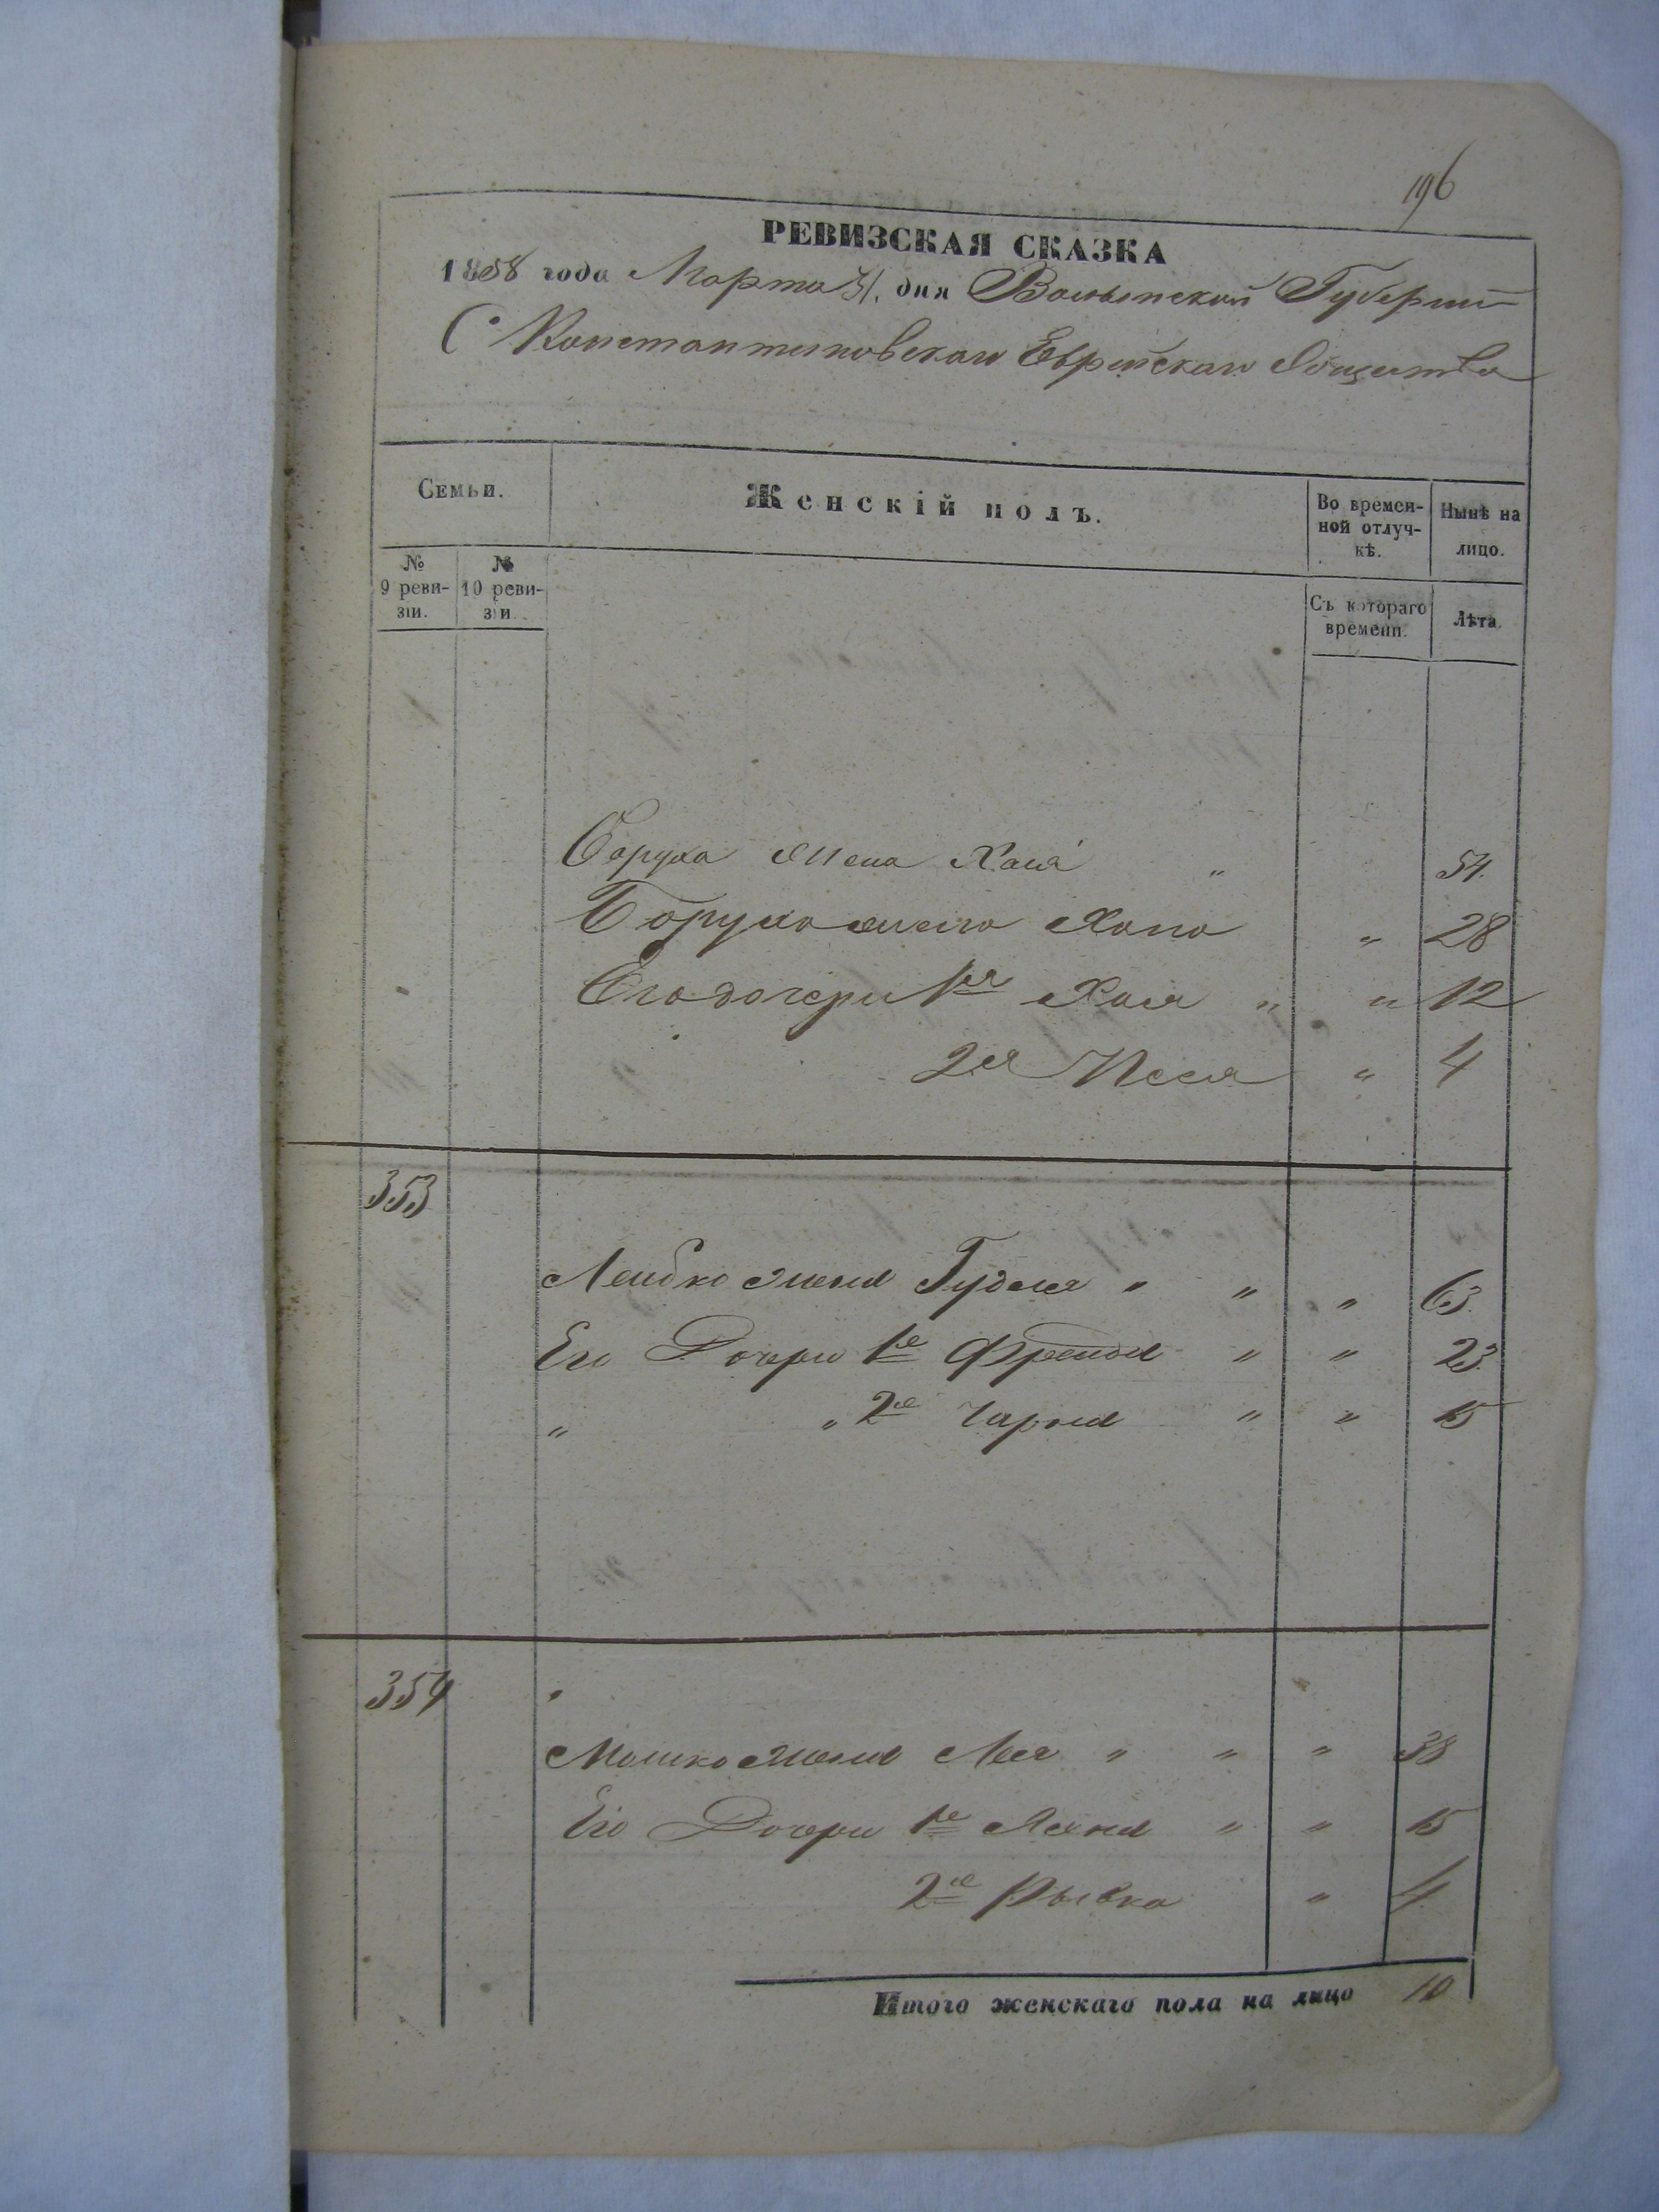 196
РЕВИЗСКАЯ СКАЗКА
1858 года Марта 31. дня Волынской Губернии
С. Константиновскаго Еврейскаго Общества
Семьи. Женскій полъ. Во времен-ной отлуч-кѣ. Нынѣ на лицо.
№ 9 реви-зіи. № 10 реви-зіи. Съ котораго времени. Лѣта.
жена Хая " 54.
Боруха жена Хана " 28
Его дочери 1я Хая " " 12
2я Песя " 4
353
Лейбко жена Гуделя " " " 63.
Его Дочери 1я Фрейда " " 23.
" " 2я Чарна " " 15
354
Мошко жена Лея " " " 38
Его Дочери 1я " " 15
2я Рывка " 4
Итого женскаго пола на лицо 10